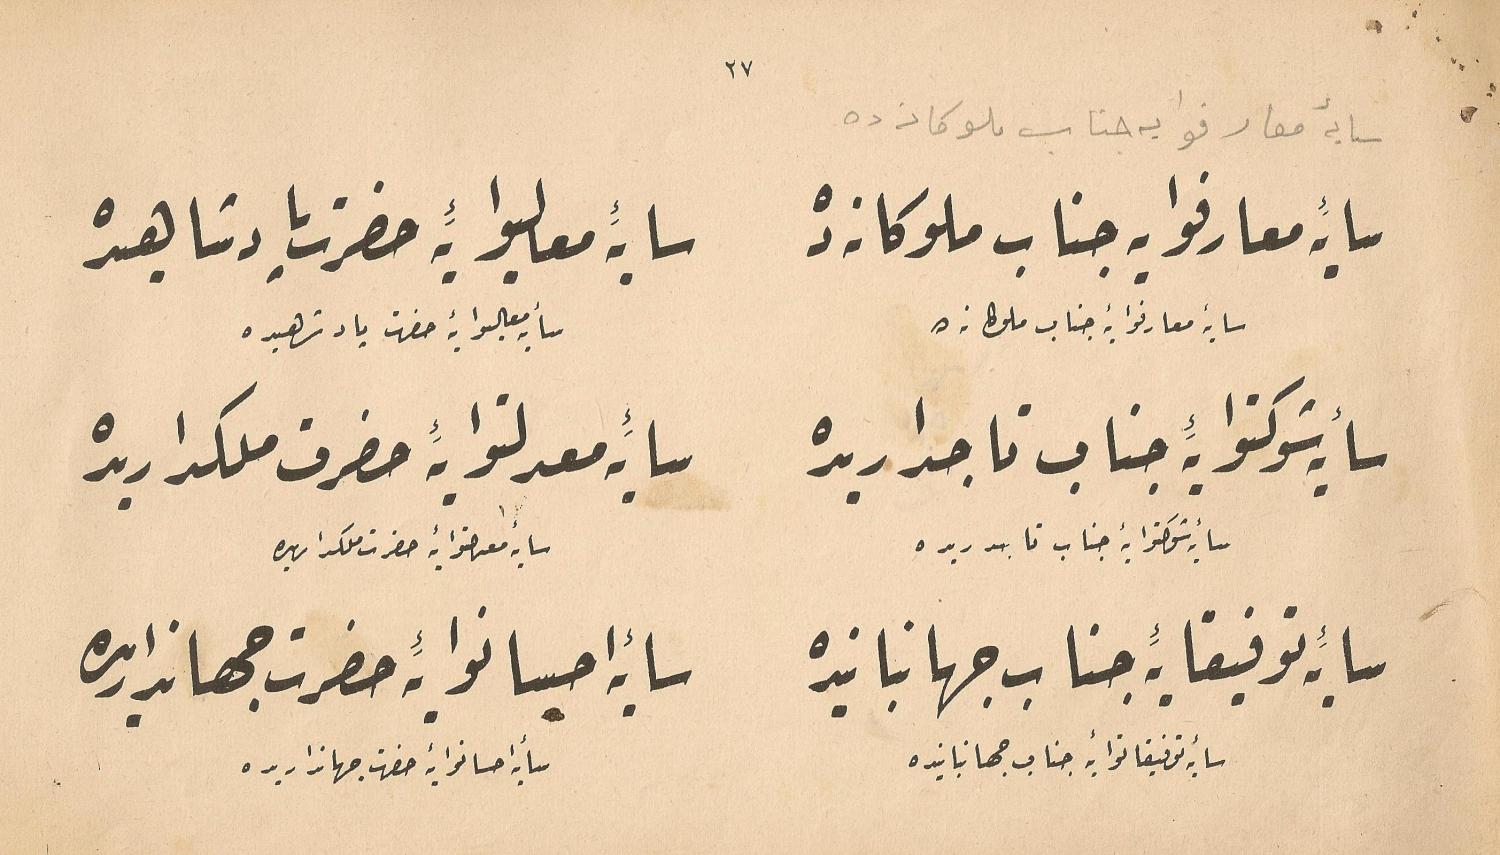 ٢٧
سایهٔ معارفوایه جناب ملوکانه ده
سایهٔ معارفوایه جناب ملوکانه ده
سایهٔ معالیوایهٔ حضرت پادشاهیده
سایهٔ معارفوایهٔ جناب ملوکانه ده
سایهٔ معالیوایهٔ حضرت پادشاهیده
سایهٔ شوکتوایهٔ جناب تاجداریده
سایهٔ معدلتوایهٔ حضرت ملکداریده
سایهٔ شوکتوایهٔ جناب تاجداریده
سایهٔ معدلتوایهٔ حضرت ملکداریده
سایهٔ توفیقایهٔ جناب جهانبانیده
سایهٔ احسانوایهٔ حضرت جهانداریده
سایهٔ توفیقانوایهٔ جناب جهانبانیده
سایهٔ احسانوایهٔ حضرت جهانداریده